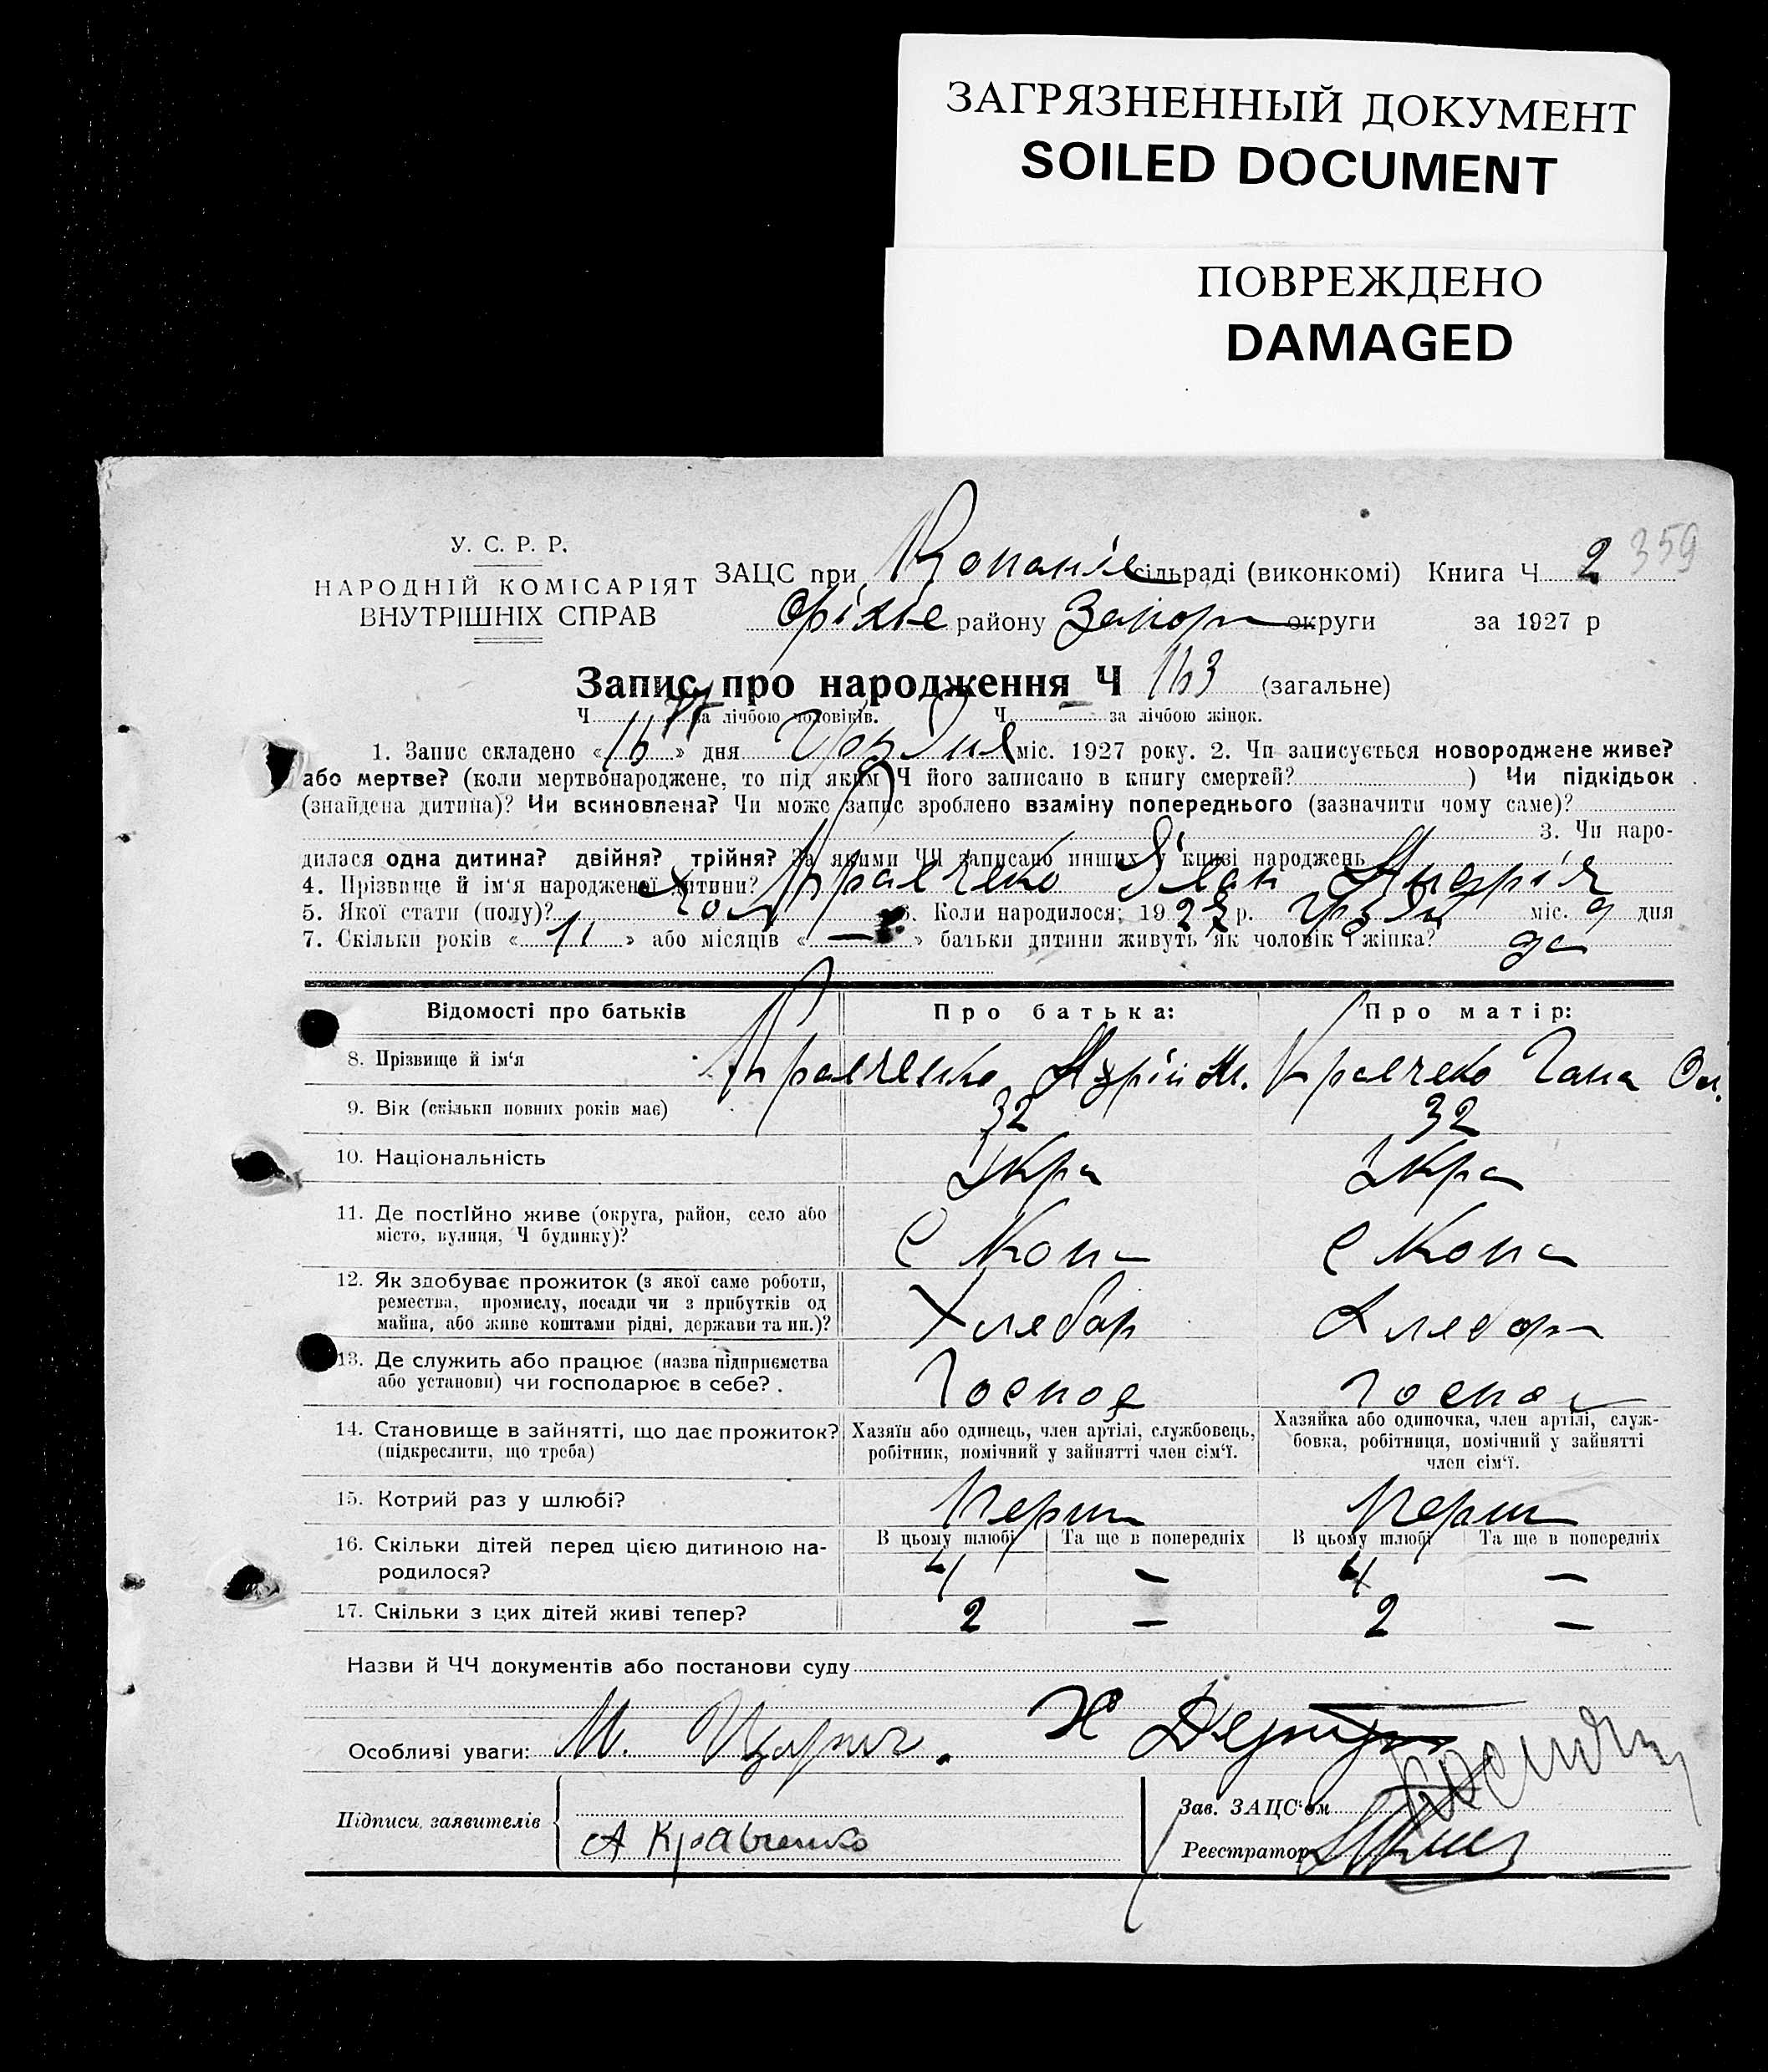 ЗАГРЯЗНЕННЫЙ ДОКУМЕНТ
SOILED DOCUMENT
ПОВРЕЖДЕНО
DAMAGED
У. С. Р. Р.
НАРОДНІЙ КОМІСАРІЯТ
ВНУТРІШНІХ СПРАВ
ЗАЦС при сільраді (виконкомі) Книга Ч 2 359
району Запор округи за 1927 р
Запис про народження Ч 163 (загальне)
Ч 77 за лічбою чоловіків. Ч за лічбою жінок.
1. Запис складено «16» дня міс. 1927 року. 2. Чи записується новороджене живе?
або мертве? (коли мертвонароджене, то під яким Ч його записано в книгу смертей? ) Чи підкідьок
(знайдена дитина)? Чи всиновлена? Чи може запис зроблено взаміну попереднього (зазначити чому саме)?
3. Чи наро-
дилася одна дитина? двійня? трійня? За якими ЧЧ записано инших у книзі народжень
4. Прізвище й ім'я народженої дитини? Кравчеко Іван Андрія
5. Якої стати (полу)? чол 6. Коли народилося; 1927 р. міс. 9 дня
7. Скільки років «11» або місяців «—» батьки дитини живуть як чоловік і жінка? да
Відомості про батьків Про батька: Про матір:
8. Прізвище й ім'я Кравченко Адрій М. Кравчеко Гана Ол.
9. Вік (скільки повних років має) 32 32
10. Національність Укра Укра
11. Де постІйно живе (округа, район, село або
місто, вулиця, Ч будинку)? С Копа С Копа
12. Як здобуває прожиток (з якої саме роботи,
ремества, промислу, посади чи з прибутків од
майна, або живе коштами рідні, держави та ин.)? Хлебор Хлебор
13. Де служить або працює (назва підприємства
або установи) чи господарює в себе? Господ Господ
14. Становище в зайнятті, що дає прожиток?
(підкреслити, що треба)
Хазяїн або одинець, член артілі, службовець,
робітник, помічний у зайнятті член сім'ї.
Хазяйка або одиночка, член артілі, служ-
бовка, робітниця, помічний у зайнятті
член сім'ї.
15. Котрий раз у шлюбі? Перш Перш
16. Скільки дітей перед цією дитиною на-
родилося?
В цьому шлюбі Та ще в попередніх В цьому шлюбі Та ще в попередніх
4 — 4 —
17. Скільки з цих дітей живі тепер? 2 — 2 —
Назви й ЧЧ документів або постанови суду
Особливі уваги: М.
Підписи заявителів А Кравченко
Зав. ЗАЦС'ом
Реєстратор